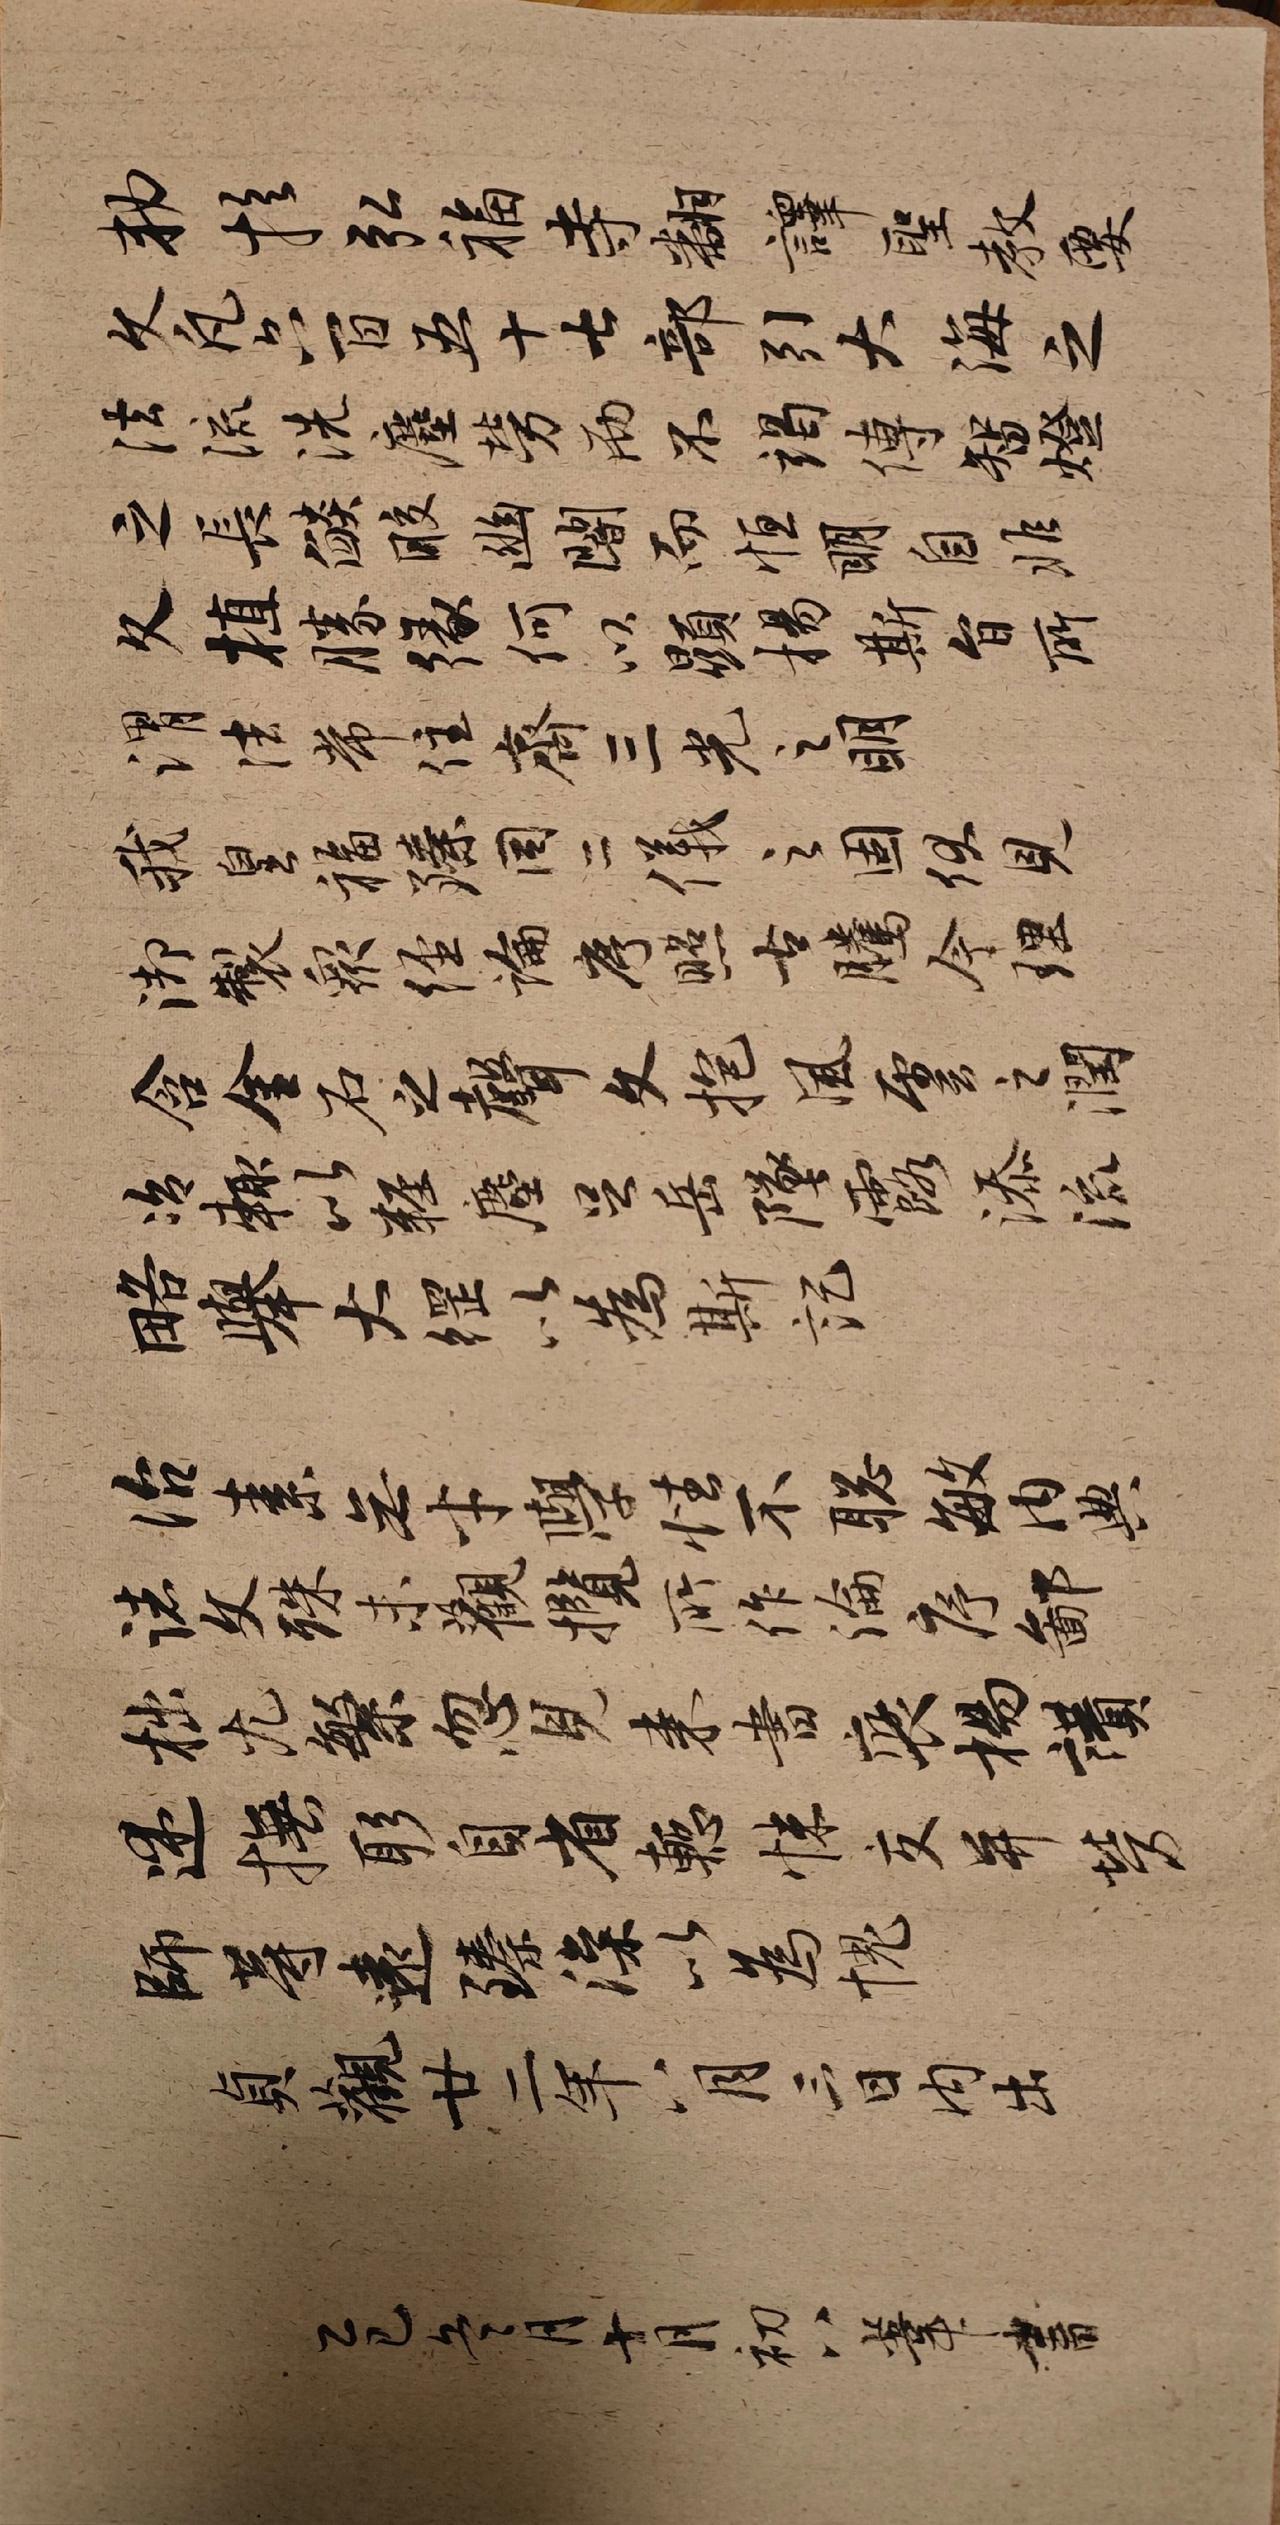 勅於弘福寺翻譯聖教要
文凡六百五十七部引大海之
法流洗塵勞而不竭傳智燈
之長燄皎幽闇而恒明自非
久植勝緣何以顯揚斯旨所
謂法常住齊三光之明
我皇福臻同二儀之固伏見
御製眾經論序照古騰今理
含金石之聲文抱風雲之潤
治輒以輕塵足岳墜露添流
略舉大綱以為斯記
治素無才學性不聰敏內典
諸文殊未觀攬所作論序鄙
拙尤繁忽見來書褒揚讚
述撫躬自省慙悚交并勞
師等遠臻深以為愧
貞觀廿二年八月三日內出
乙巳月十月初八書